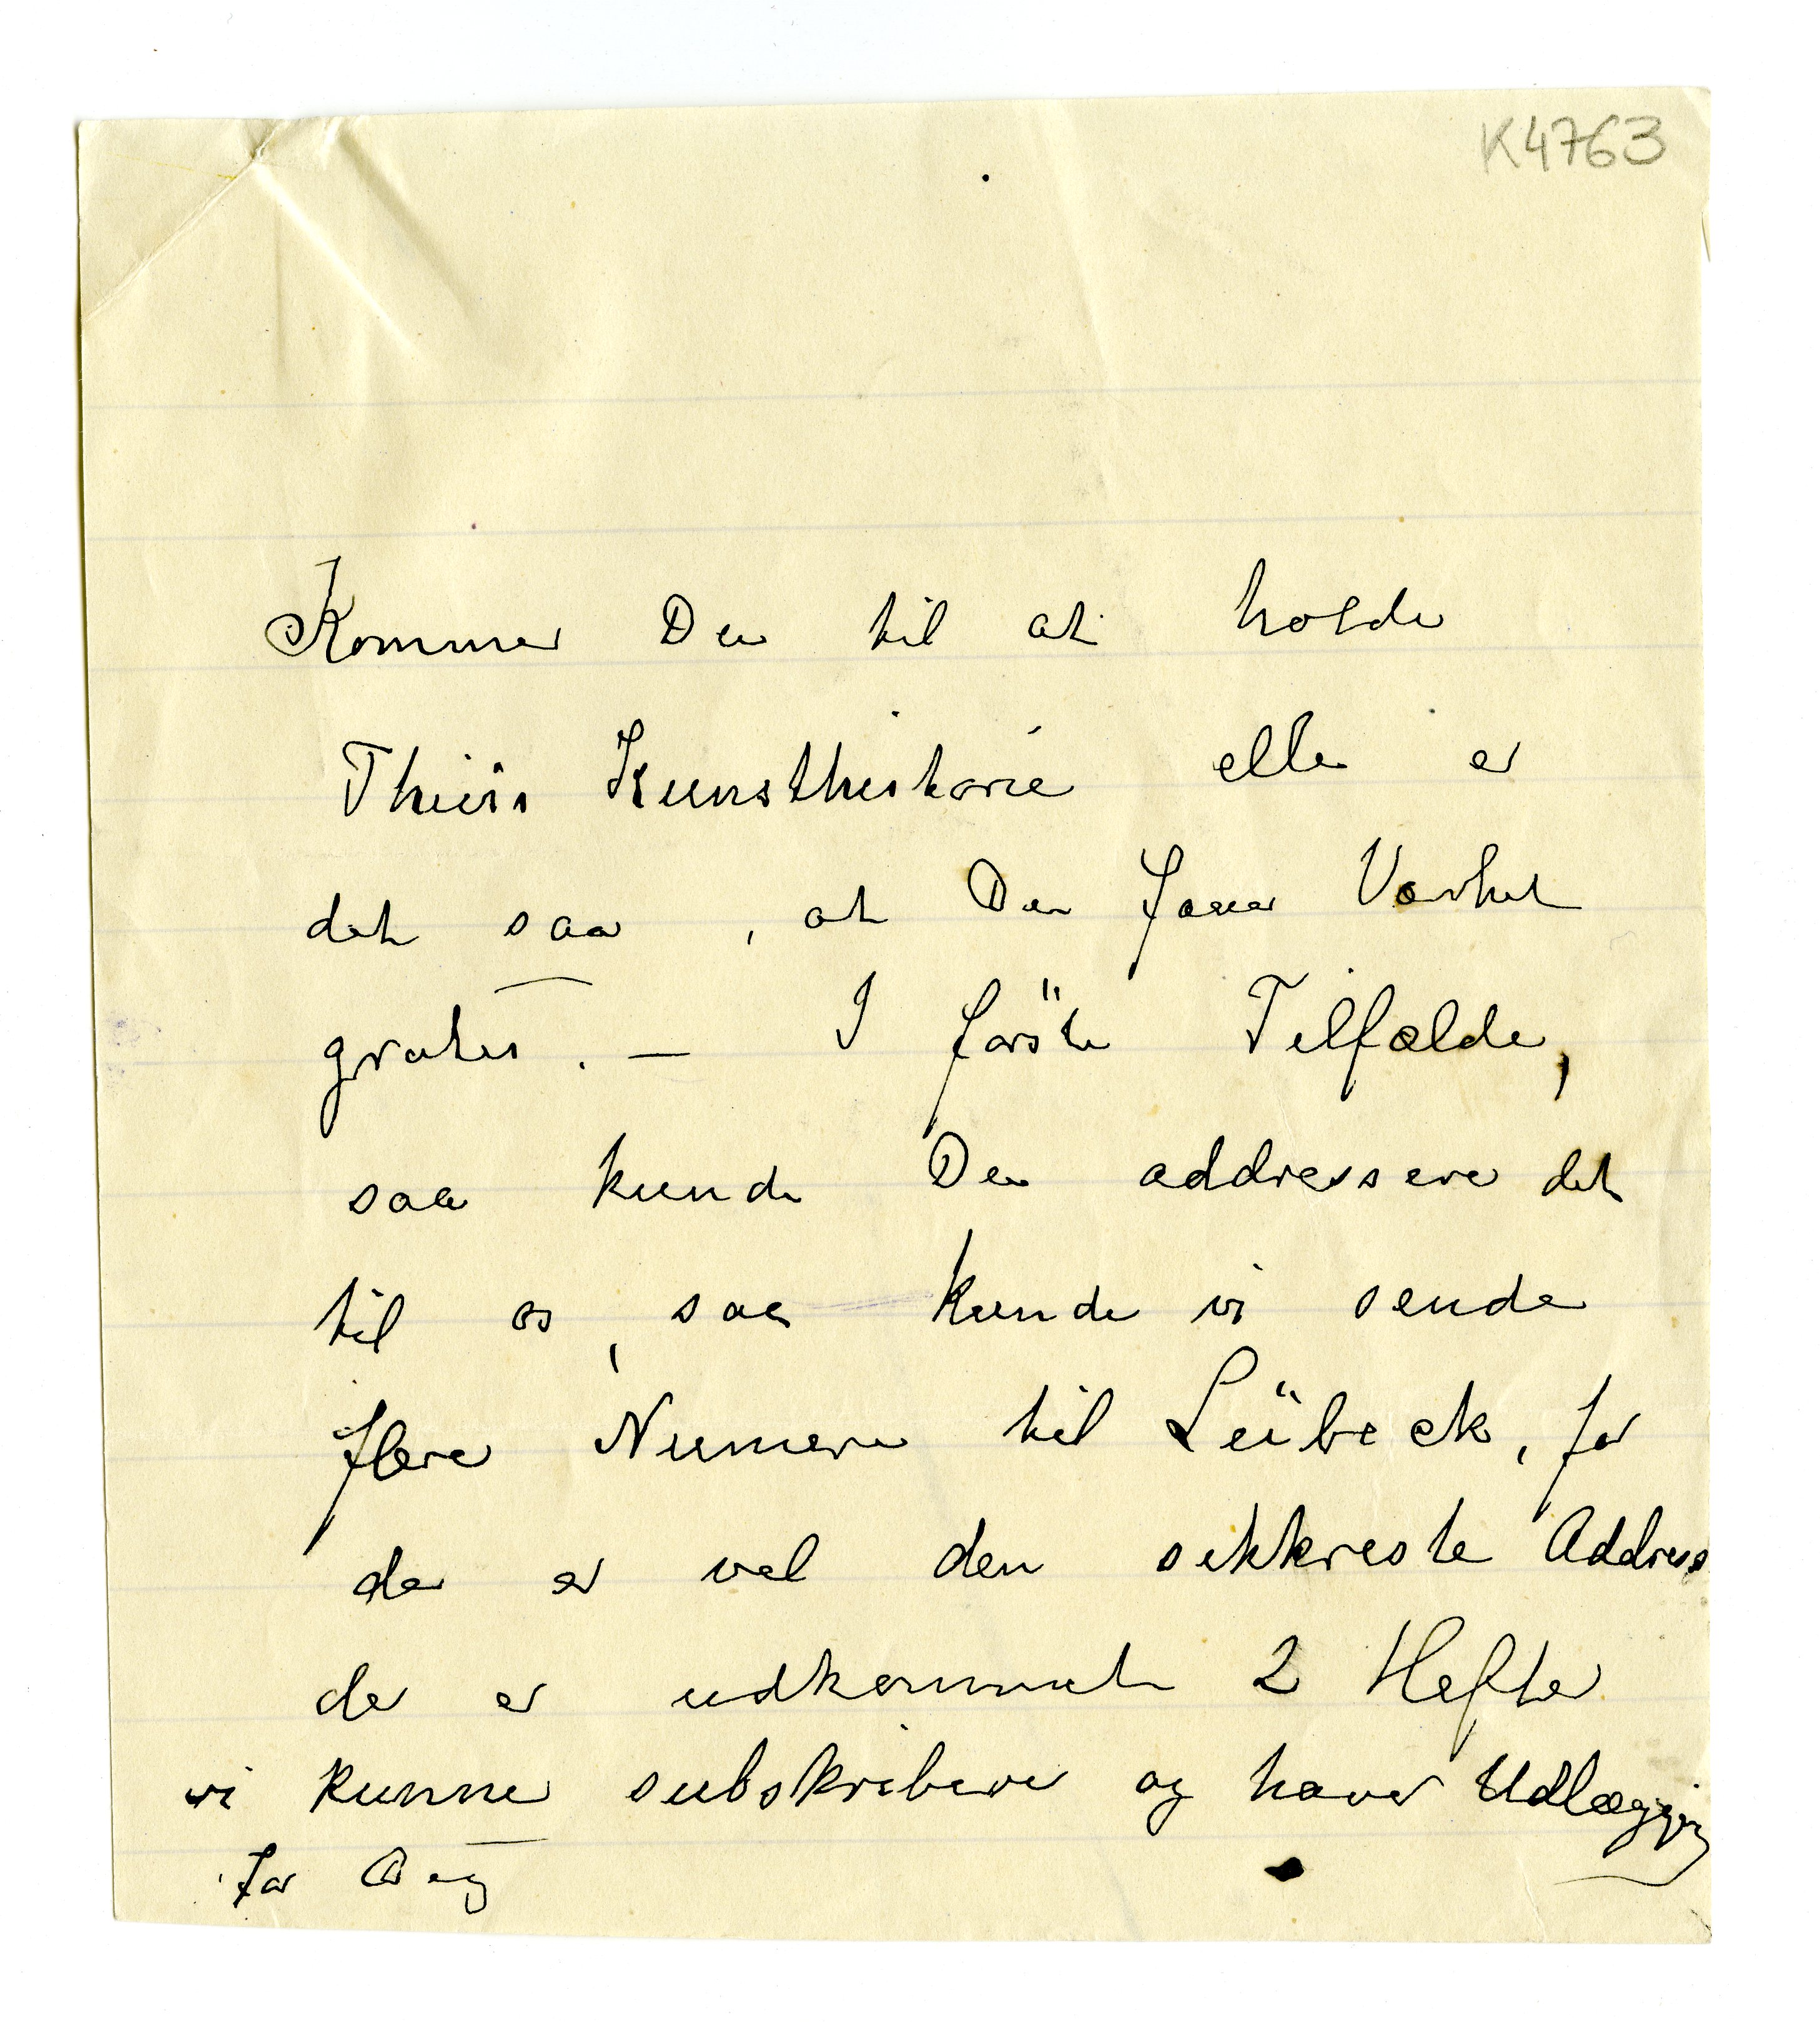 K4763
Kommer Du til at holde
Thiis's Kunsthistorie eller er
det saa, at Du faaer Værket
gratis. — I første Tilfælde,
saa kunde Du addressere det
til os, saa kunde vi sende
flere Numere til Lübeck, for
der er vel den sikkreste Address
der er udkommet 2 Hefter
vi kunne subskribere og haver Udlægging
for Dig